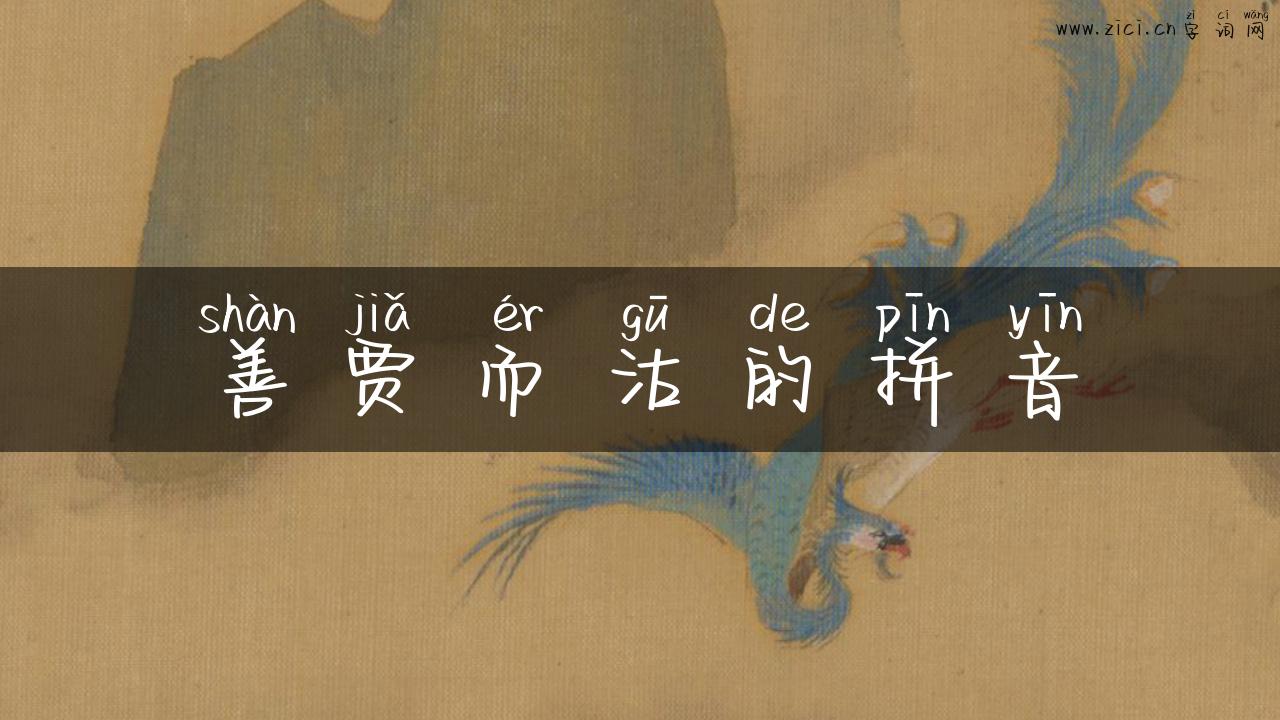 zì cí wǎng
www.zici.cn 字词网
shàn jiǎ ér gū de pīn yīn
善贾而沽的拼音